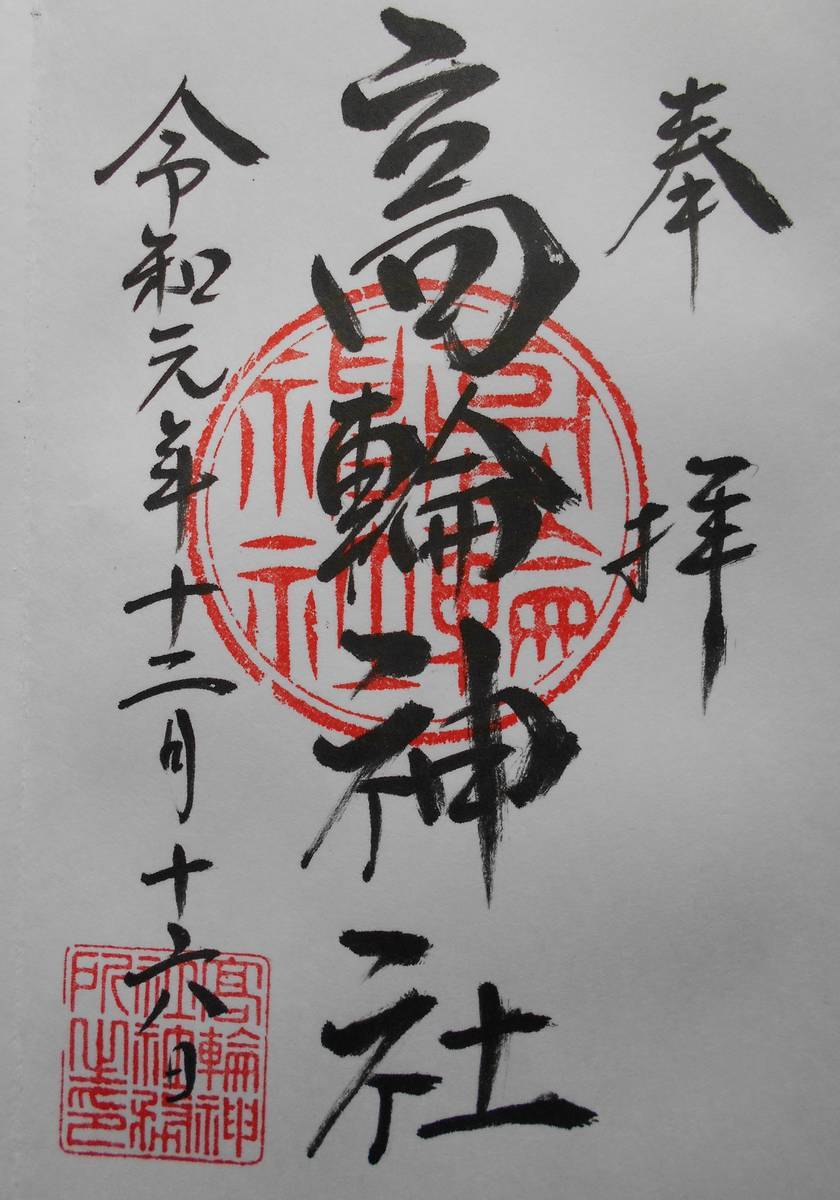 奉拝
高輪神社
令和元年十二月十六日
高輪神社
高輪神
社社務
所之印